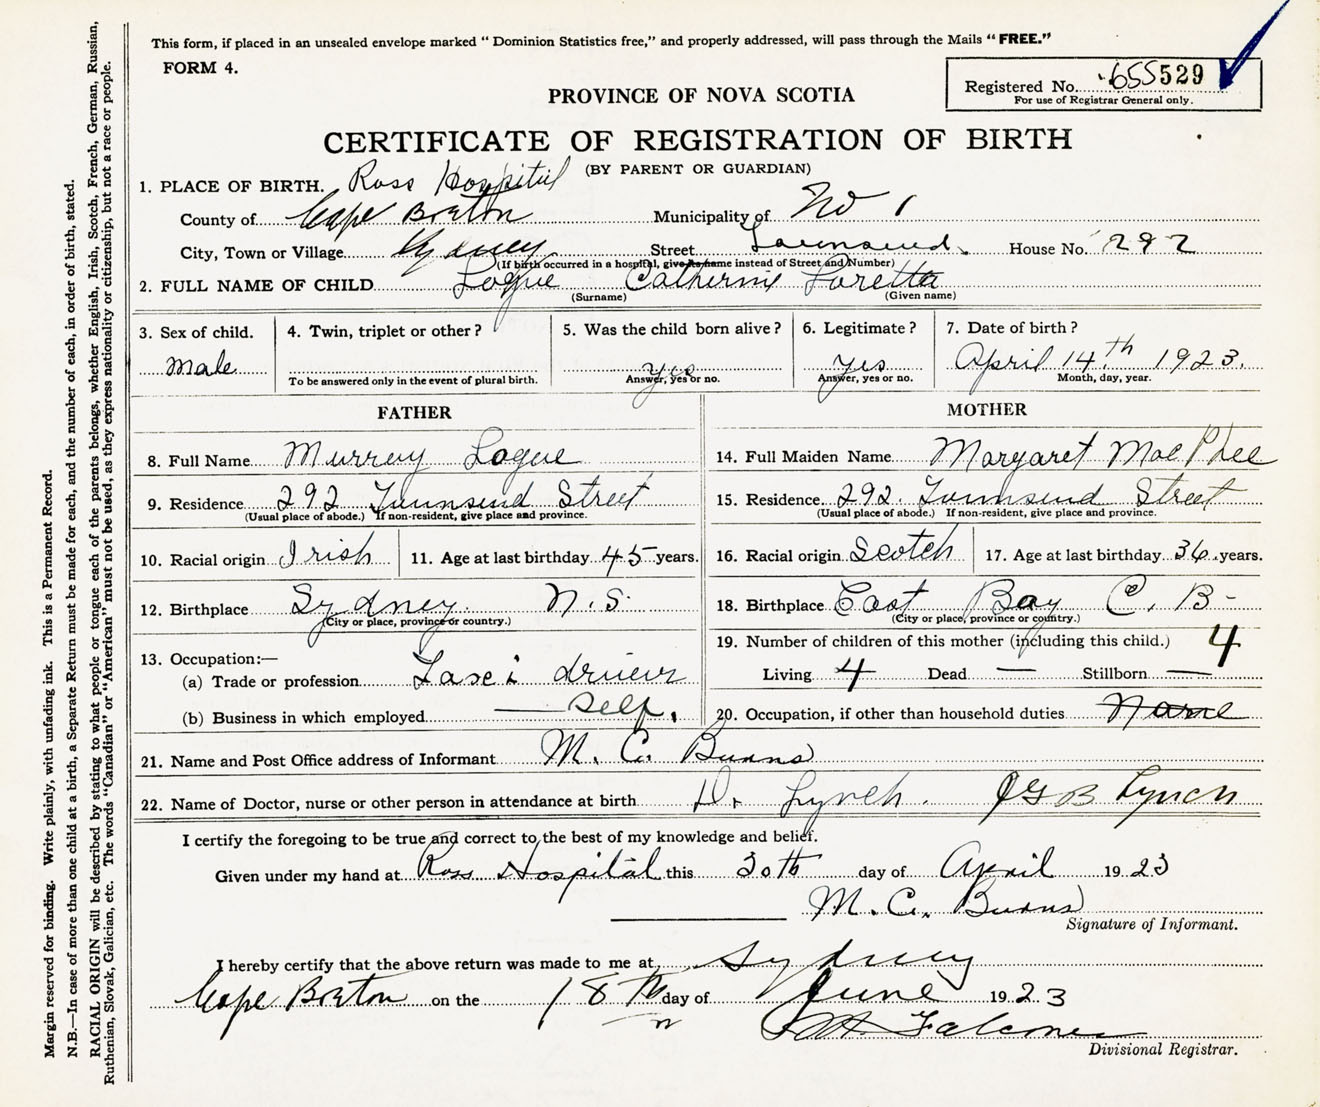 This form, if placed in an unsealed envelope marked “ Dominion Statistics free,” and properly addressed, will pass through the Mails “ FREE.”
FORM 4.
Registered No. 655529
For use of Registrar General only.
PROVINCE OF NOVA SCOTIA
CERTIFICATE OF REGISTRATION OF BIRTH
(BY PARENT OR GUARDIAN)
1. PLACE OF BIRTH. Ross Hospital
County of Cape Breton Municipality of No 1
City, Town or Village Sydney Street Townsend House No. 292
(If birth occurred in a hospital, give its name instead of Street and Number)
2. FULL NAME OF CHILD Logue Catherine Loretta
(Surname) (Given name)
3. Sex of child. 4. Twin, triplet or other? 5. Was the child born alive? 6. Legitimate? 7. Date of birth?
Male yes yes April 14th 1923.
To be answered only in the event of plural birth. Answer, yes or no. Answer, yes or no. Month, day, year.
FATHER MOTHER
8. Full Name Murray Logue 14. Full Maiden Name Margaret MacPhee
9. Residence 292 Townsend Street 15. Residence 292. Townsend Street
(Usual place of abode.) If non-resident, give place and province. (Usual place of abode.) If non-resident, give place and province.
10. Racial origin Irish 11. Age at last birthday 45 years. 16. Racial origin Scotch 17. Age at last birthday 36 years.
12. Birthplace Sydney. N.S. 18. Birthplace East Bay C. B-
(City or place, province or country.) (City or place, province or country.)
13. Occupation:— 19. Number of children of this mother (including this child.) 4
(a) Trade or profession Taxi driver Living 4 Dead — Stillborn —
(b) Business in which employed — Self. 20. Occupation, if other than household duties None
21. Name and Post Office address of Informant M. C. Burns
22. Name of Doctor, nurse or other person in attendance at birth Dr Lynch. JGB Lynch
I certify the foregoing to be true and correct to the best of my knowledge and belief.
Given under my hand at Ross Hospital this 30th day of April 1923
M. C. Burns
Signature of Informant.
I hereby certify that the above return was made to me at Sydney
Cape Breton on the 18th day of June 1923
Falconer
Divisional Registrar.
Margin reserved for binding. Write plainly, with unfading ink. This is a Permanent Record.
N.B.—In case of more than one child at a birth, a Separate Return must be made for each, and the number of each, in order of birth, stated.
RACIAL ORIGIN will be described by stating to what people or tongue each of the parents belongs, whether English, Irish, Scotch, French, German, Russian,
Ruthenian, Slovak, Galician, etc. The words “Canadian” or “American” must not be used, as they express nationality or citizenship, but not a race or people.